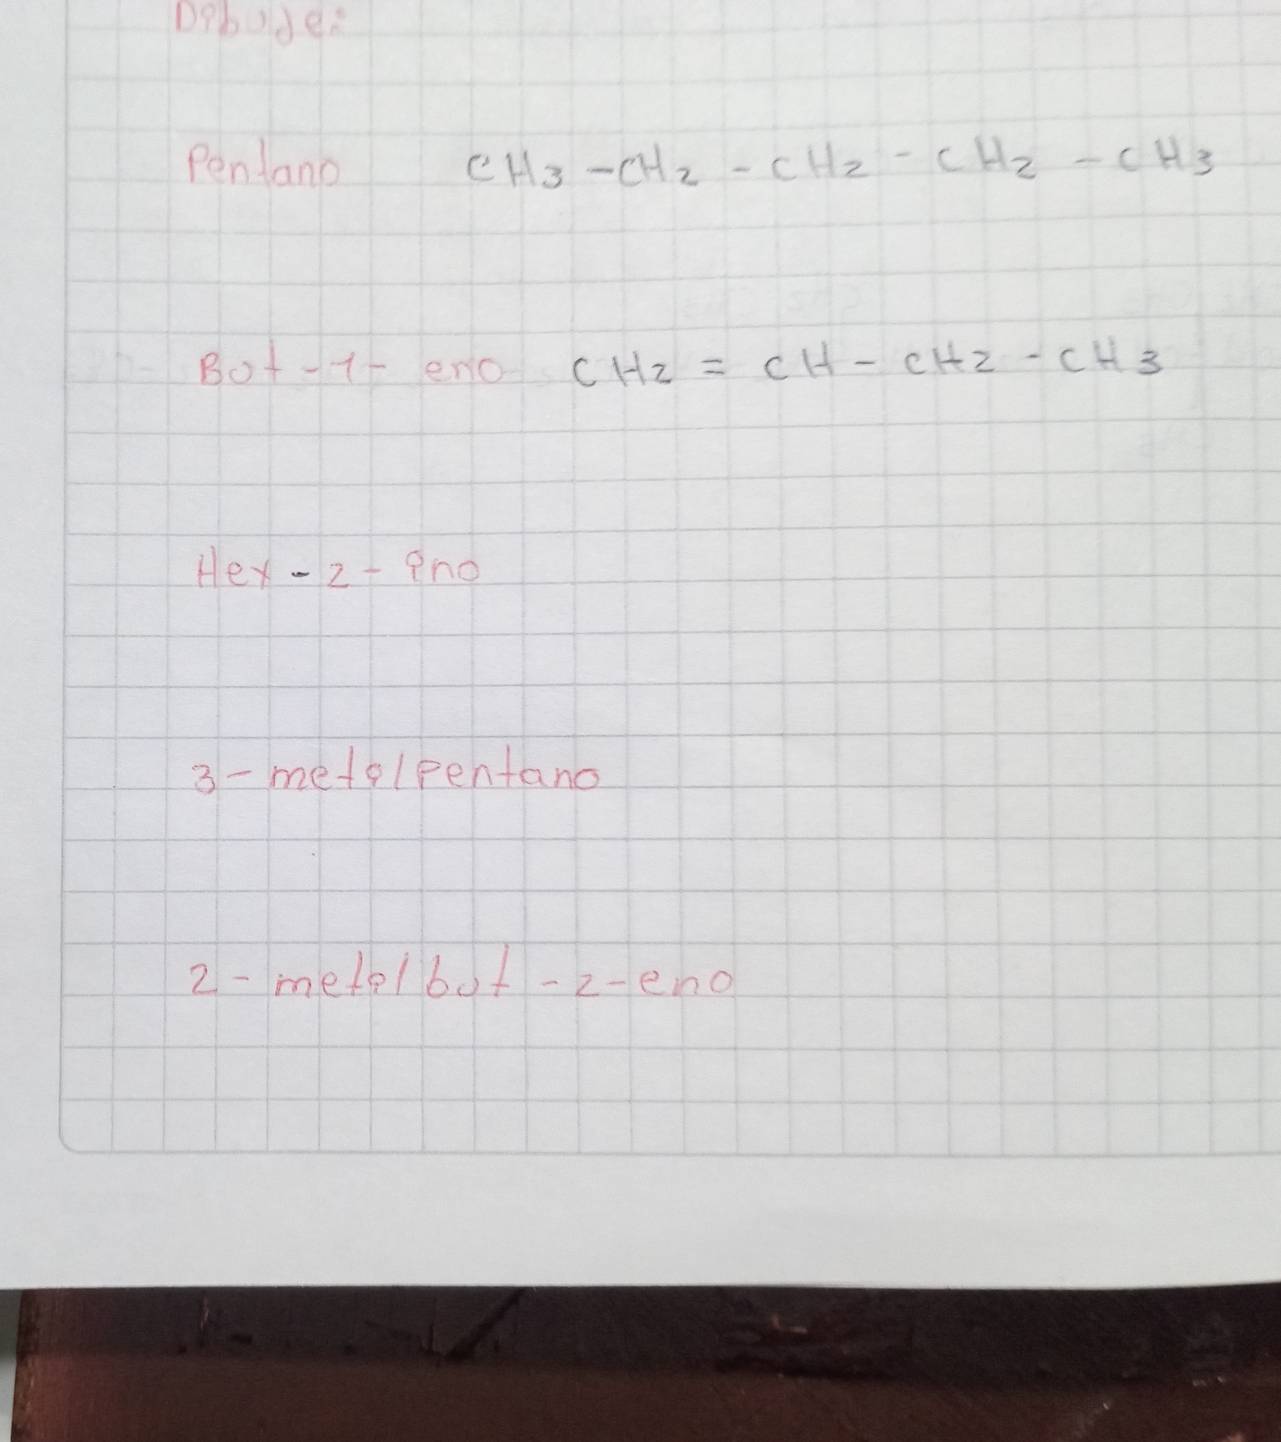 Dibuje:
Pentano CH3 - CH2 - CH2 - CH2 - CH3
But - 1 - eno CH2 = CH - CH2 - CH3
Hex - 2 - ino
3 - metilpentano
2 - metilbut - 2 - eno